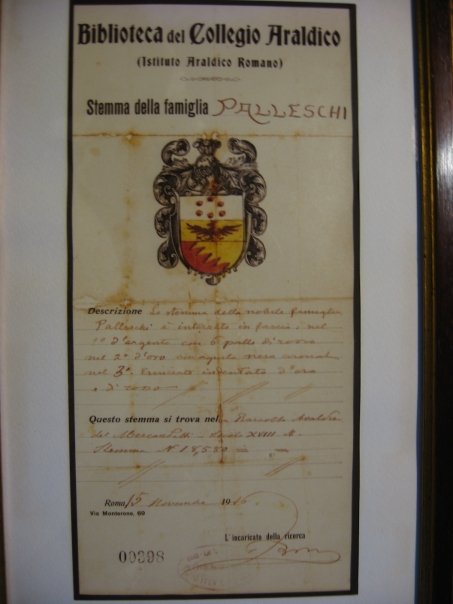 Biblioteca del Collegio Araldico
(Istituto Araldico Romano)
Stemma della famiglia PALLESCHI
Descrizione Lo stemma della nobile famiglia
Palleschi è interzato in fascia: nel
1° d'argento con 6 palle di rosso
nel 2° d'oro
nel 3° indentato d'oro
e di rosso
Questo stemma si trova nel Raccolta Araldica
del secolo XVIII
Stemma N 18,580
Roma, 5 Novembre 19
Via Monterone, 69
L'incaricato della ricerca
00398